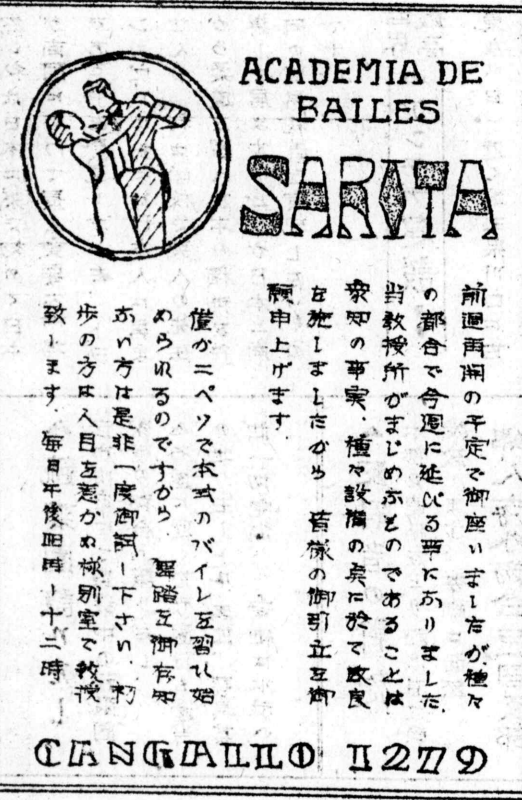 ACADEMIA DE
BAILES
SARITA
前週再開の予定で御座いましたが、種々
の都合で今週に延びる事になりました、
当教授所がまじめなものであることは
衆知の事実、種々設備の点に於て改良
を施しましたから 皆様の御引立を御
願申上げます
僅か二ペソで本式のバイレを習ひ始
められるのですから、舞踏を御存知
ない方は是非一度御試し下さい、初
歩の方は人目を惹かぬ様別室で教授
致します、毎日午後四時ー十二時、
CANGALLO 1279